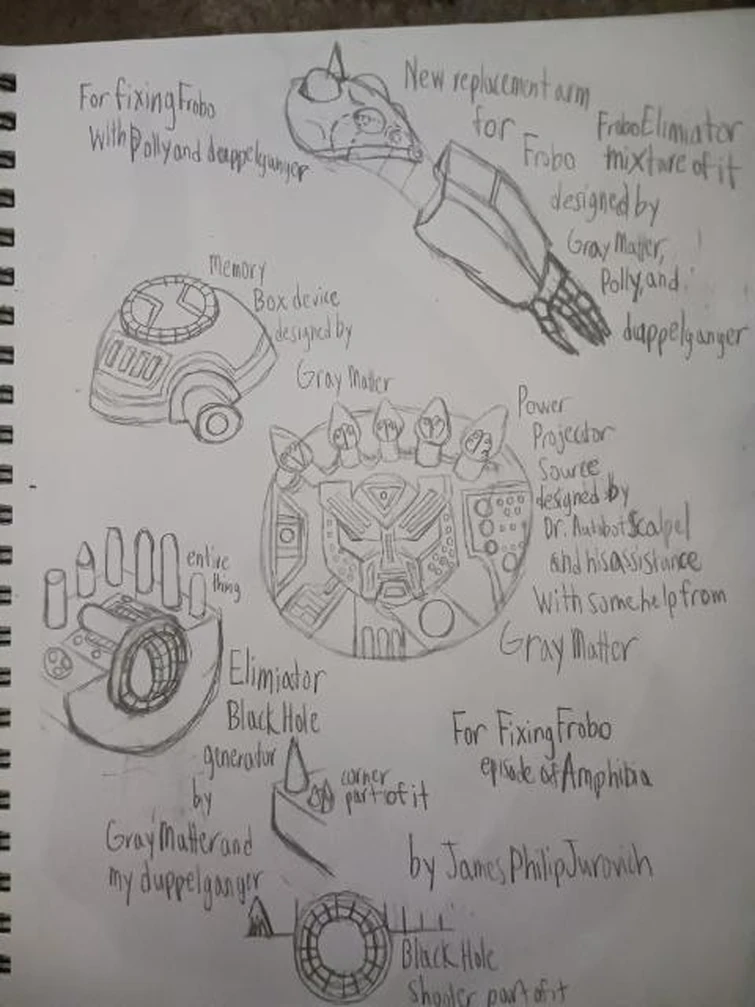 For fixing Frobo
With Polly and duappelganger
New replacement arm
for
Frobo
FroboElimiator
mixture of it
designed by
Gray Matter,
Polly, and
duappelganger
Memory
Box device
designed by
Gray Matter
Power
Projector
Source
designed by
Dr. Autobot Scalpel
and his assistance
With some help from
Gray Matter
entire
thing
Elimiator
Black Hole
generator
by
Gray Matter and
my duppelganger
corner
part of it
For Fixing Frobo
episode of Amphibia
by James Philip Jurovich
Black Hole
shooter part of it